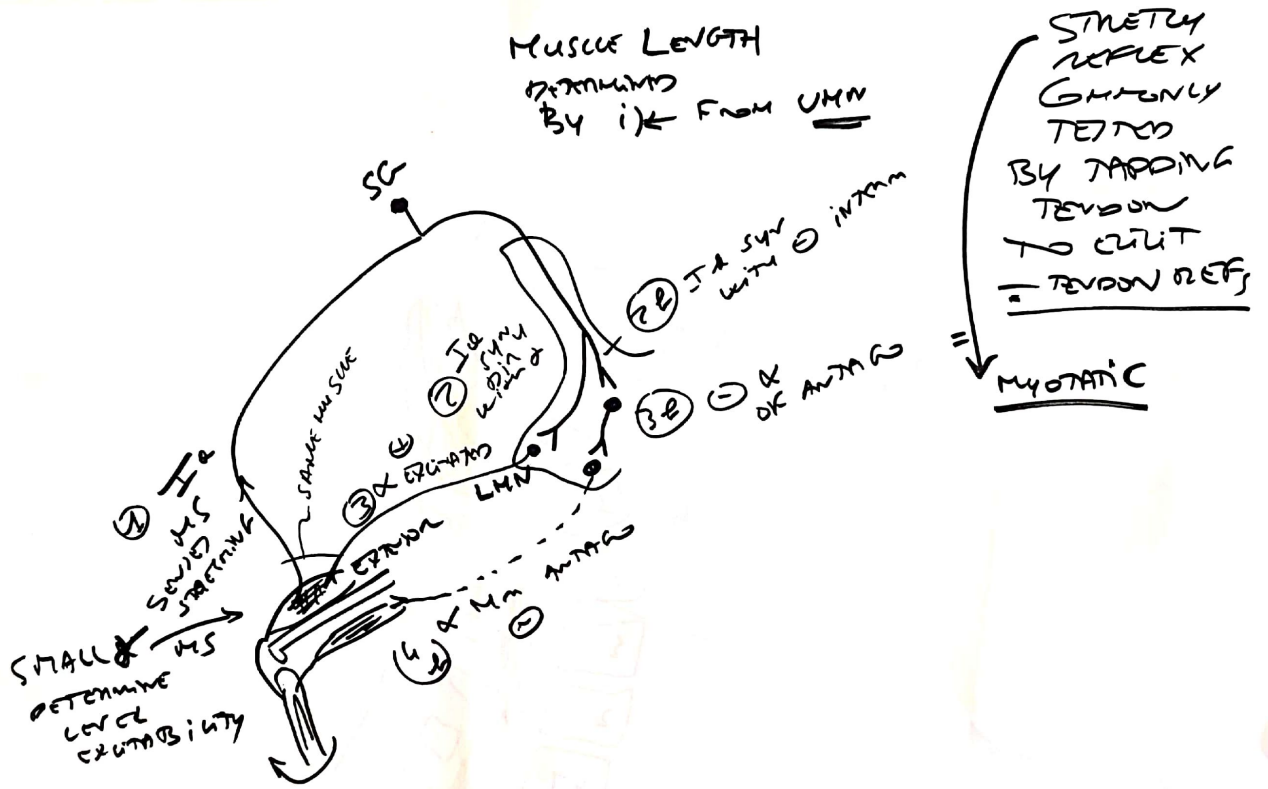 MUSCLE LENGTH
DETERMINED
BY i) ← FROM UMN
STRETCH
REFLEX
COMMONLY
TESTED
BY TAPPING
TENDON
TO ELICIT
TENDON REFS
=
MYOTATIC
SG
2b Ia SYN
WITH ⊖ INTERN
2 Ia
SYN
DIR
WITH α
3b ⊖ α
OF ANTAGO
SAME MUSCLE
3 α EXCITATED
⊕
LMN
1 Ia
MS
SENSED
STRETCHING
EXTENSOR
4b α MN ANTAGO
⊖
SMALL
MS
DETERMINE
LEVEL
EXCITABILITY